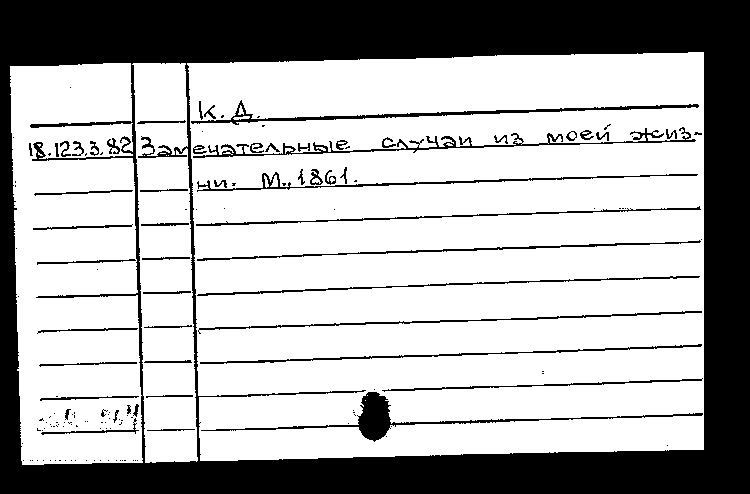 К. Д.
18.123.3.82 Замечательные случаи из моей жиз-
ни. М., 1861.